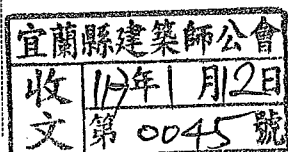 宜蘭縣建築師公會
收文
113年1月12日
第0045號